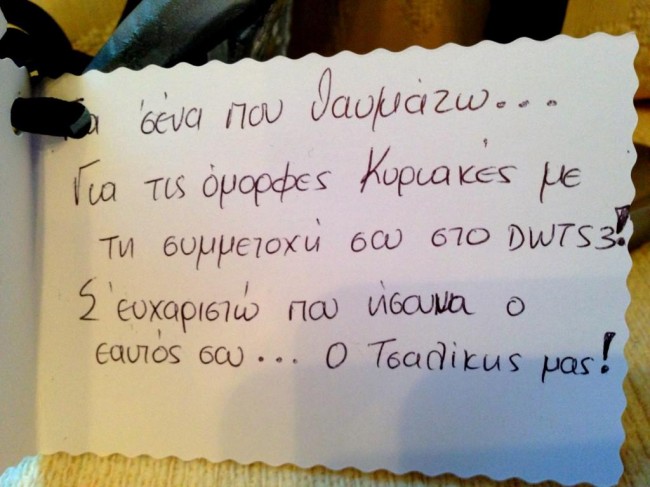 Για 'σένα που θαυμάζω...
Για τις όμορφες Κυριακές με
τη συμμετοχή σου στο DWTS3!
Σ'ευχαριστώ που ήσουνα ο
εαυτός σου... Ο Τσαλίκης μας!